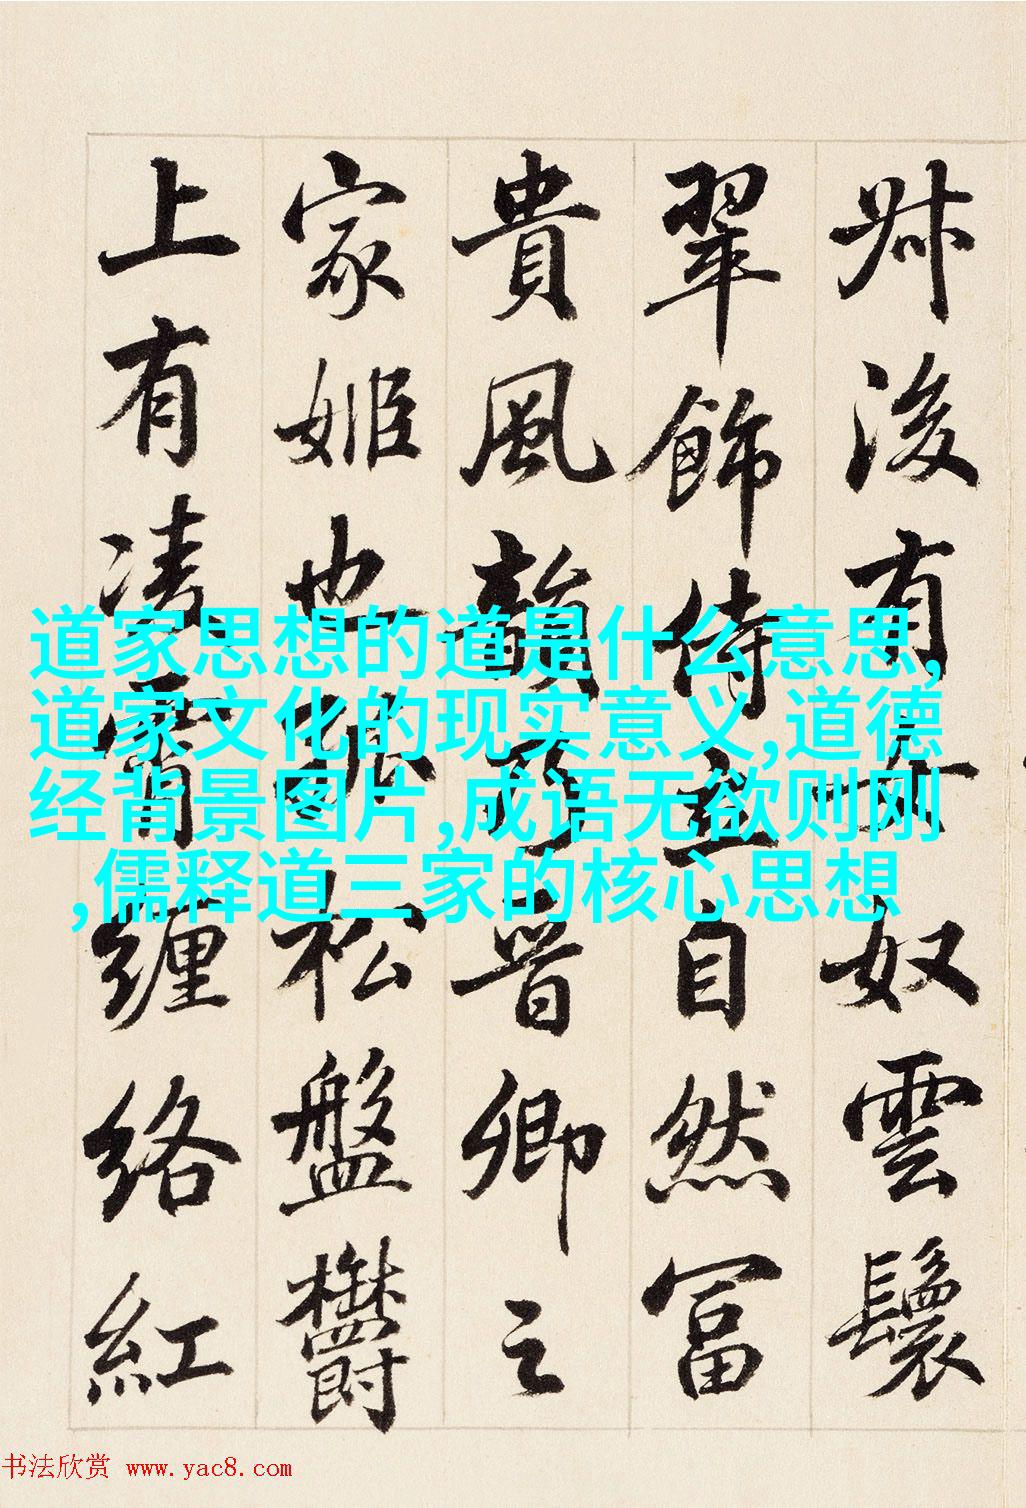 叔後有女奴雲鬟
翠飾侍立自然富
貴風韻乃晉卿之
家姬也孤松盤鬱
上有凌霄纏絡紅
道家思想的道是什么意思,
道家文化的现实意义,道德
经背景图片,成语无欲则刚
,儒释道三家的核心思想
书法欣赏 www.yac8.com